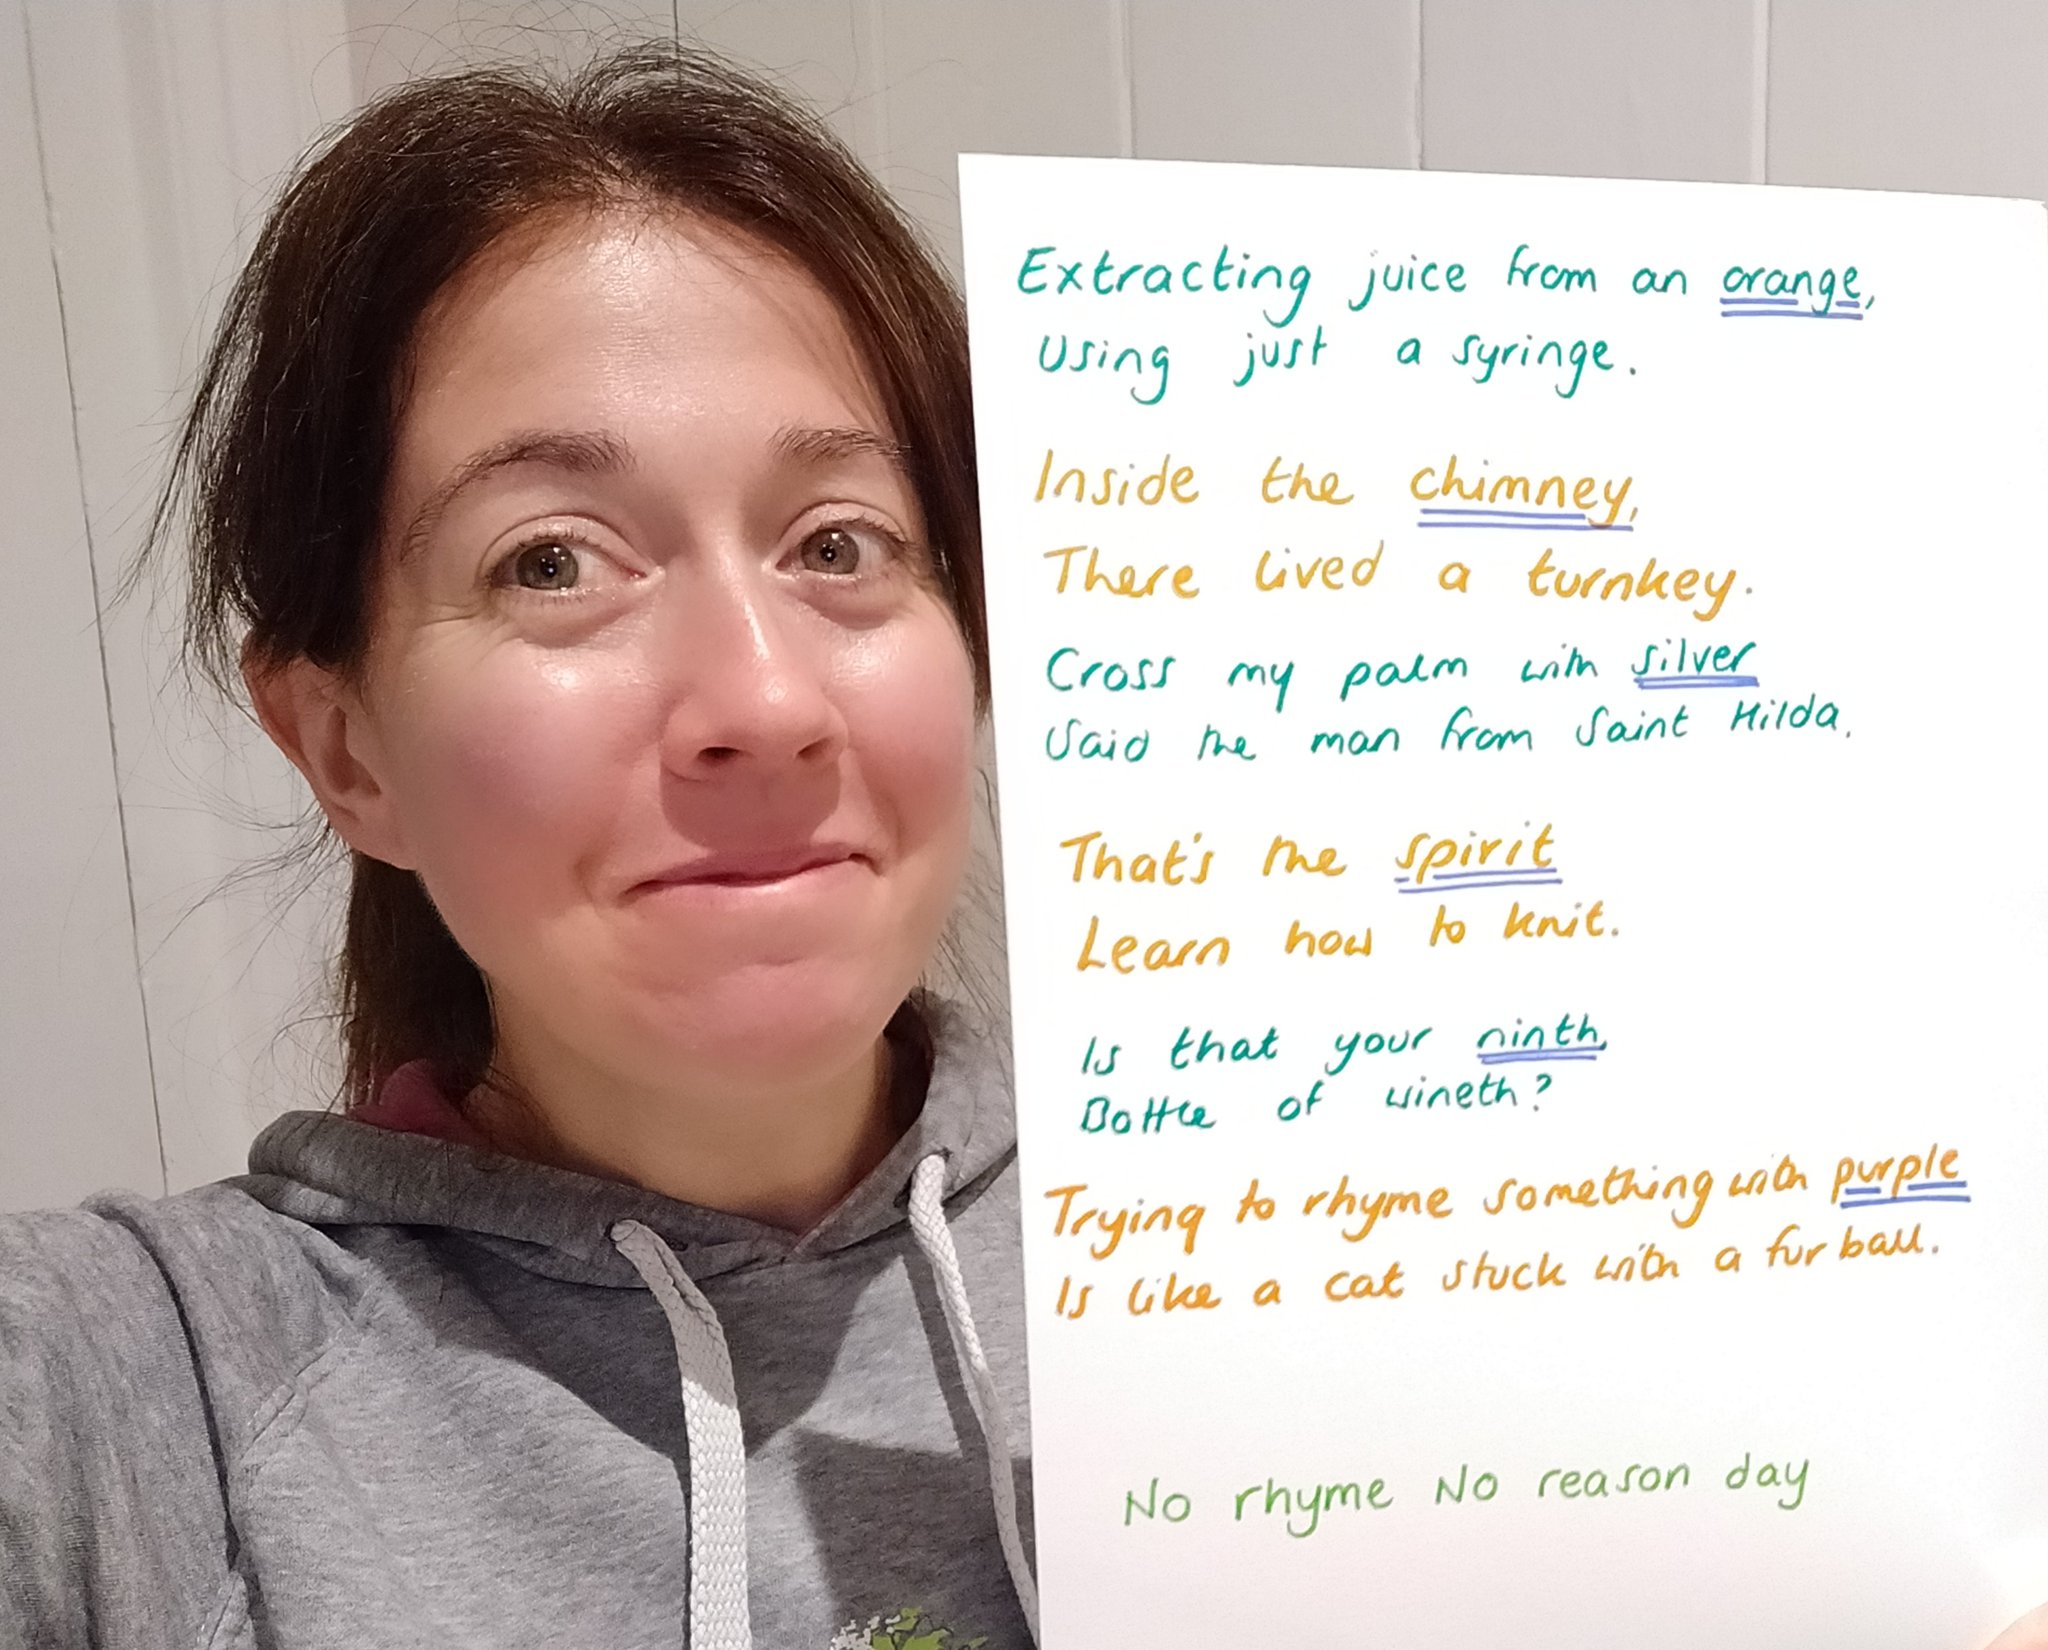 Extracting juice from an orange,
Using just a syringe.
Inside the chimney,
There lived a turnkey.
Cross my palm with silver
Said the man from Saint Hilda.
That's the spirit
Learn how to knit.
Is that your ninth,
Bottle of wineth?
Trying to rhyme something with purple
Is like a cat stuck with a fur ball.
No rhyme No reason day